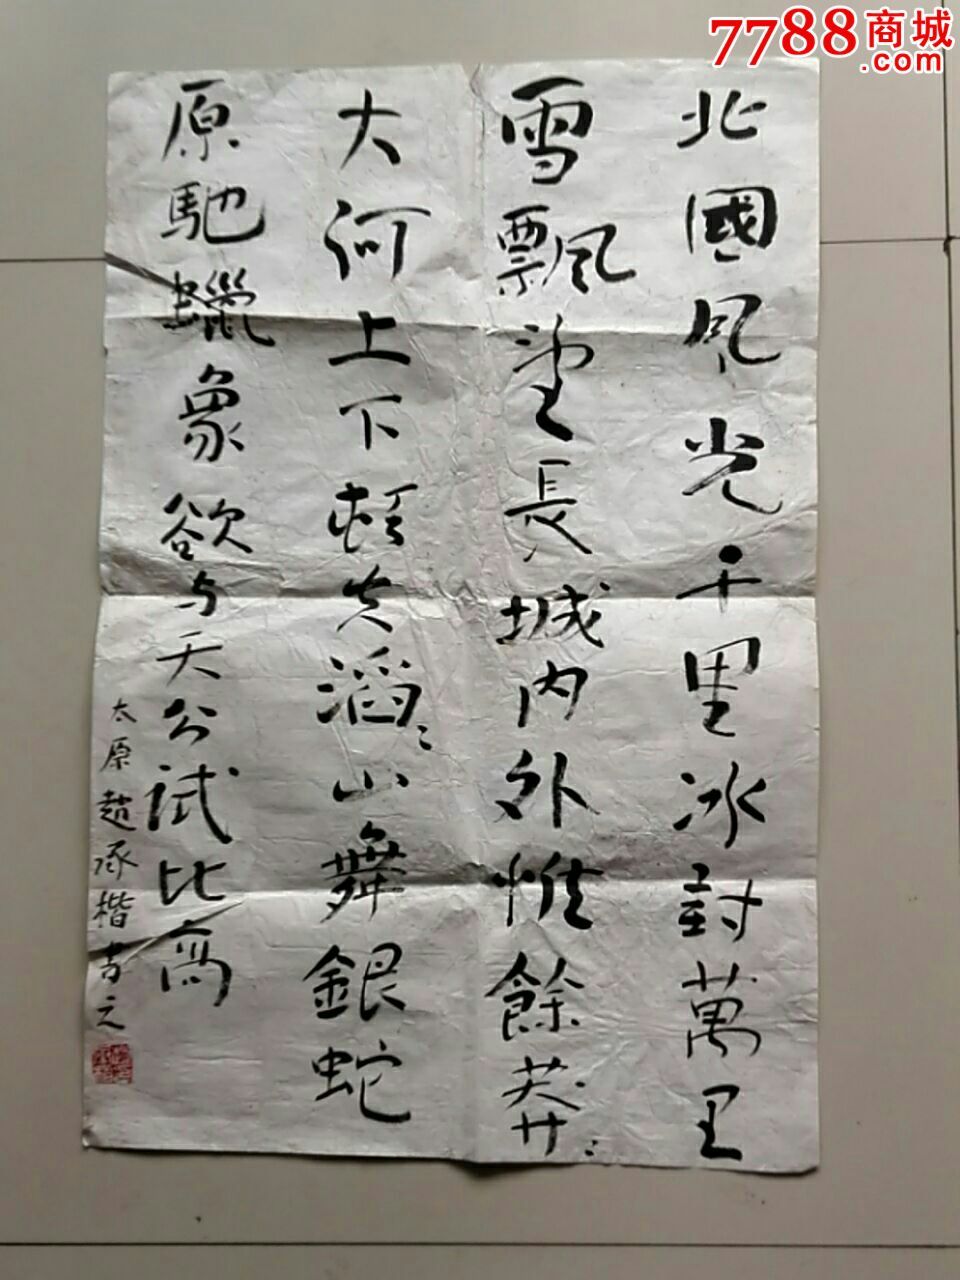 7788商城
.com
北國風光千里冰封萬里
雪飄望長城內外惟餘莽〻
大河上下頓失滔〻山舞銀蛇
原馳蠟象欲与天公試比高
太原趙承楷書之